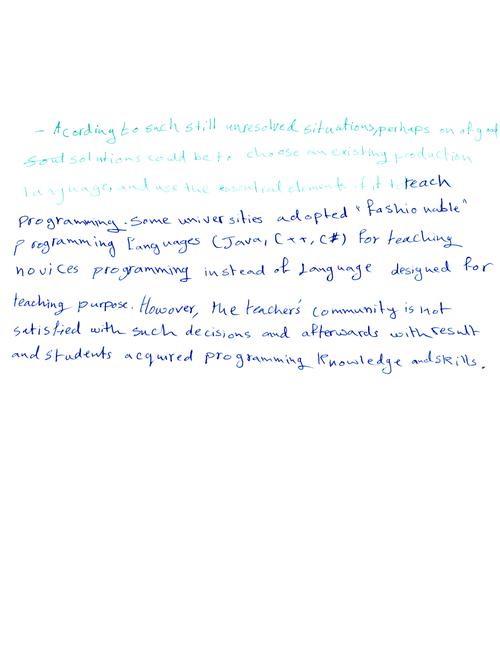 - Acording to such still unresolved situations, perhaps on of good
soud solutions could be to choose an existing production
Language, and use the essential elements if it to teach
programming. Some universities adopted "fashionable"
Programming Languages (Java, C++, C#) for teaching
novices programming instead of Language designed for
teaching purpose. However, the teachers' community is not
satisfied with such decisions and afterwards with result
and students acquired programming knowledge and skills.